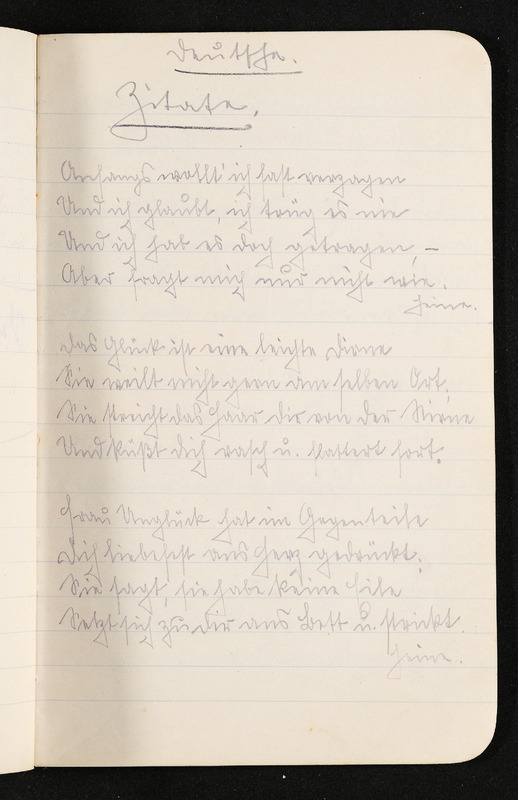 Deutsche.
Zitate.
Anfangs wollt' ich fast verzagen
Und ich glaubt, ich trüg es nie
Und ich hab es doch getragen, –
Aber fragt mich nur nicht wie.
Heine.
Das Glück ist eine leichte Dirne
Sie weilt nicht gern am selben Ort,
Sie streicht das Haar dir von der Stirne
Und küßt dich rasch u. flattert fort.
Frau Unglück hat im Gegenteile
Dich liebefest ans Herz gedrückt;
Sie sagt, sie habe keine Eile
Setzt sich zu dir ans Bett u. strickt.
Heine.